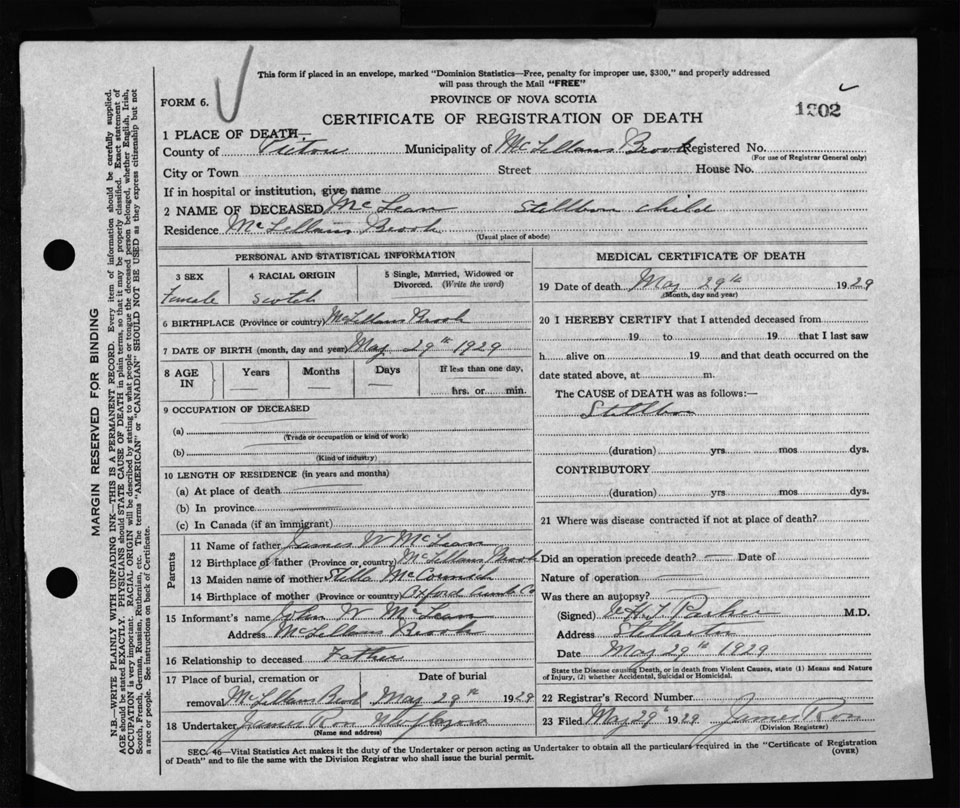 This form if placed in an envelope, marked "Dominion Statistics—Free, penalty for improper use, $300," and properly addressed
will pass through the Mail "FREE"
FORM 6.
PROVINCE OF NOVA SCOTIA
1302
CERTIFICATE OF REGISTRATION OF DEATH
1 PLACE OF DEATH—
County of Pictou Municipality of McLellans Brook Registered No.
(For use of Registrar General only)
City or Town Street House No.
If in hospital or institution, give name
2 NAME OF DECEASED McLean Stillborn child
Residence McLellans Brook
(Usual place of abode)
PERSONAL AND STATISTICAL INFORMATION
3 SEX 4 RACIAL ORIGIN 5 Single, Married, Widowed or Divorced. (Write the word)
Female Scotch
6 BIRTHPLACE (Province or country) McLellans Brook
7 DATE OF BIRTH (month, day and year) May 29th 1929
8 AGE IN Years Months Days If less than one day,
hrs. or min.
9 OCCUPATION OF DECEASED
(a)
(Trade or occupation or kind of work)
(b)
(Kind of industry)
10 LENGTH OF RESIDENCE (in years and months)
(a) At place of death
(b) In province
(c) In Canada (if an immigrant)
Parents
11 Name of father James W McLean
12 Birthplace of father (Province or country) McLellans Brook
13 Maiden name of mother Stella McCormick
14 Birthplace of mother (Province or country) Oxford Cumb Co
15 Informant's name John W McLean
Address McLellans Brook
16 Relationship to deceased Father
17 Place of burial, cremation or removal Date of burial
McLellans Brook May 29th 1929
18 Undertaker James Ross New Glasgow
(Name and address)
MEDICAL CERTIFICATE OF DEATH
19 Date of death May 29th 1929
(Month, day and year)
20 I HEREBY CERTIFY that I attended deceased from
19 to 19 that I last saw
h alive on 19 and that death occurred on the
date stated above, at m.
The CAUSE of DEATH was as follows:—
Stillborn
(duration) yrs. mos dys.
CONTRIBUTORY
(duration) yrs mos dys.
21 Where was disease contracted if not at place of death?
Did an operation precede death? Date of
Nature of operation
Was there an autopsy?
(Signed) Parker M.D.
Address Stellarton
Date May 29th 1929
State the Disease causing Death, or in death from Violent Causes, state (1) Means and Nature
of Injury, (2) whether Accidental, Suicidal or Homicidal.
22 Registrar's Record Number
23 Filed May 29th 1929 James Ross
(Division Registrar)
SEC. 46—Vital Statistics Act makes it the duty of the Undertaker or person acting as Undertaker to obtain all the particulars required in the "Certificate of Registration
of Death" and to file the same with the Division Registrar who shall issue the burial permit. (OVER)
MARGIN RESERVED FOR BINDING
N.B.—WRITE PLAINLY WITH UNFADING INK—THIS IS A PERMANENT RECORD. Every item of information should be carefully supplied.
AGE should be stated EXACTLY. PHYSICIANS should STATE CAUSE OF DEATH in plain terms, so that it may be properly classified. Exact statement of
OCCUPATION is very important. RACIAL ORIGIN will be described by stating to what people or tongue the deceased person belonged, whether English, Irish,
Scotch, French, German, Russian, Ruthenian, etc. The terms "AMERICAN" or "CANADIAN" SHOULD NOT BE USED as they express citizenship but not
a race or people. See instructions on back of Certificate.